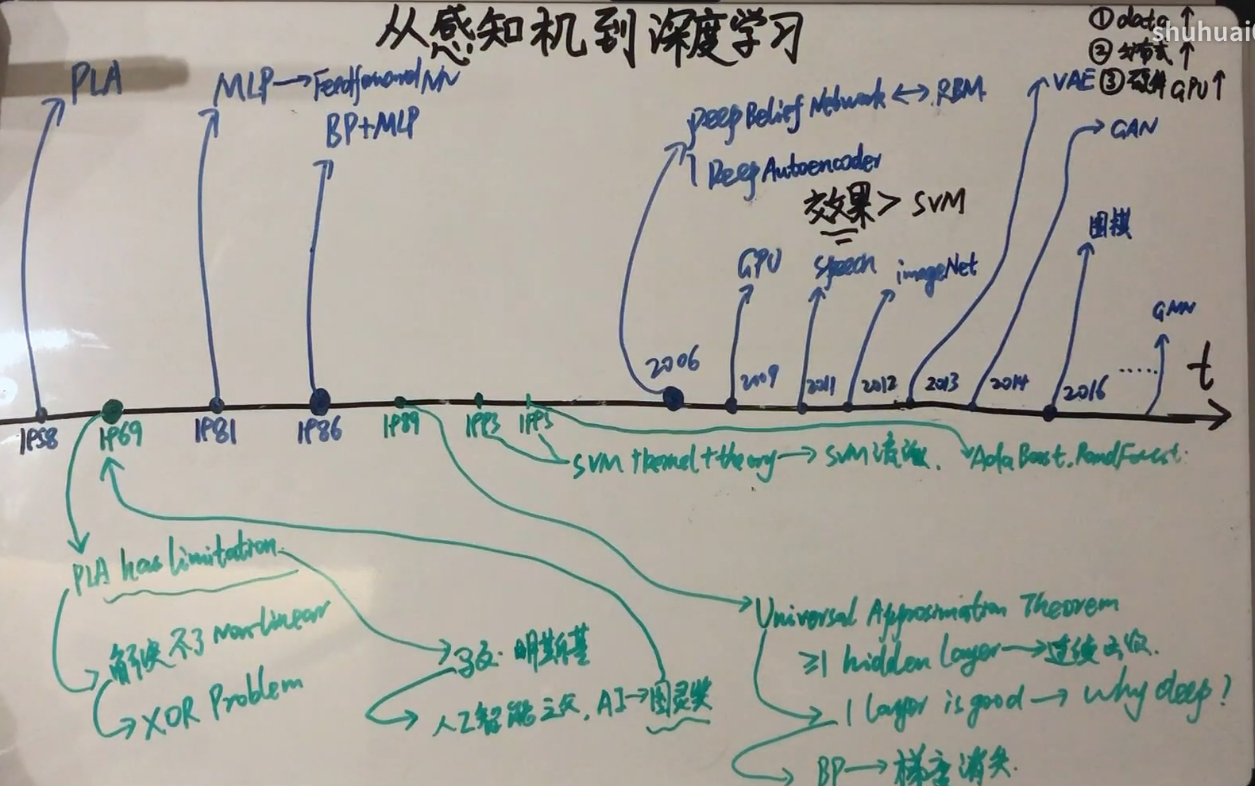 从感知机到深度学习
① data ↑
shuhuai0
② 分布式 ↑
③ 硬件 GPU ↑
PLA
MLP → Feedforward NN
BP+MLP
Deep Belief Network ↔ RBM
Deep Autoencoder
效果 > SVM
VAE
GAN
围棋
GPU
speech
imageNet
GNN
t
1958
1969
1981
1986
1989
1993
1995
2006
2009
2011
2012
2013
2014
2016
......
SVM + kernel + theory → SVM 流派.
AdaBoost. RandForest.
PLA has limitation.
解决不了 Non-linear
XOR Problem
马文·明斯基
人工智能之父. AI → 图灵奖
Universal Approximation Theorem
≥1 hidden layer → 连续函数.
1 layer is good → why deep?
BP → 梯度消失.